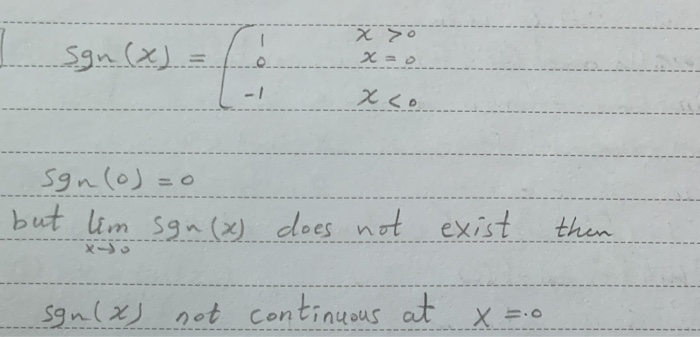 sgn(x) = { 1 x > 0
0 x = 0
-1 x < 0
sgn(0) = 0
but lim x→0 sgn(x) does not exist then
sgn(x) not continuous at x = 0